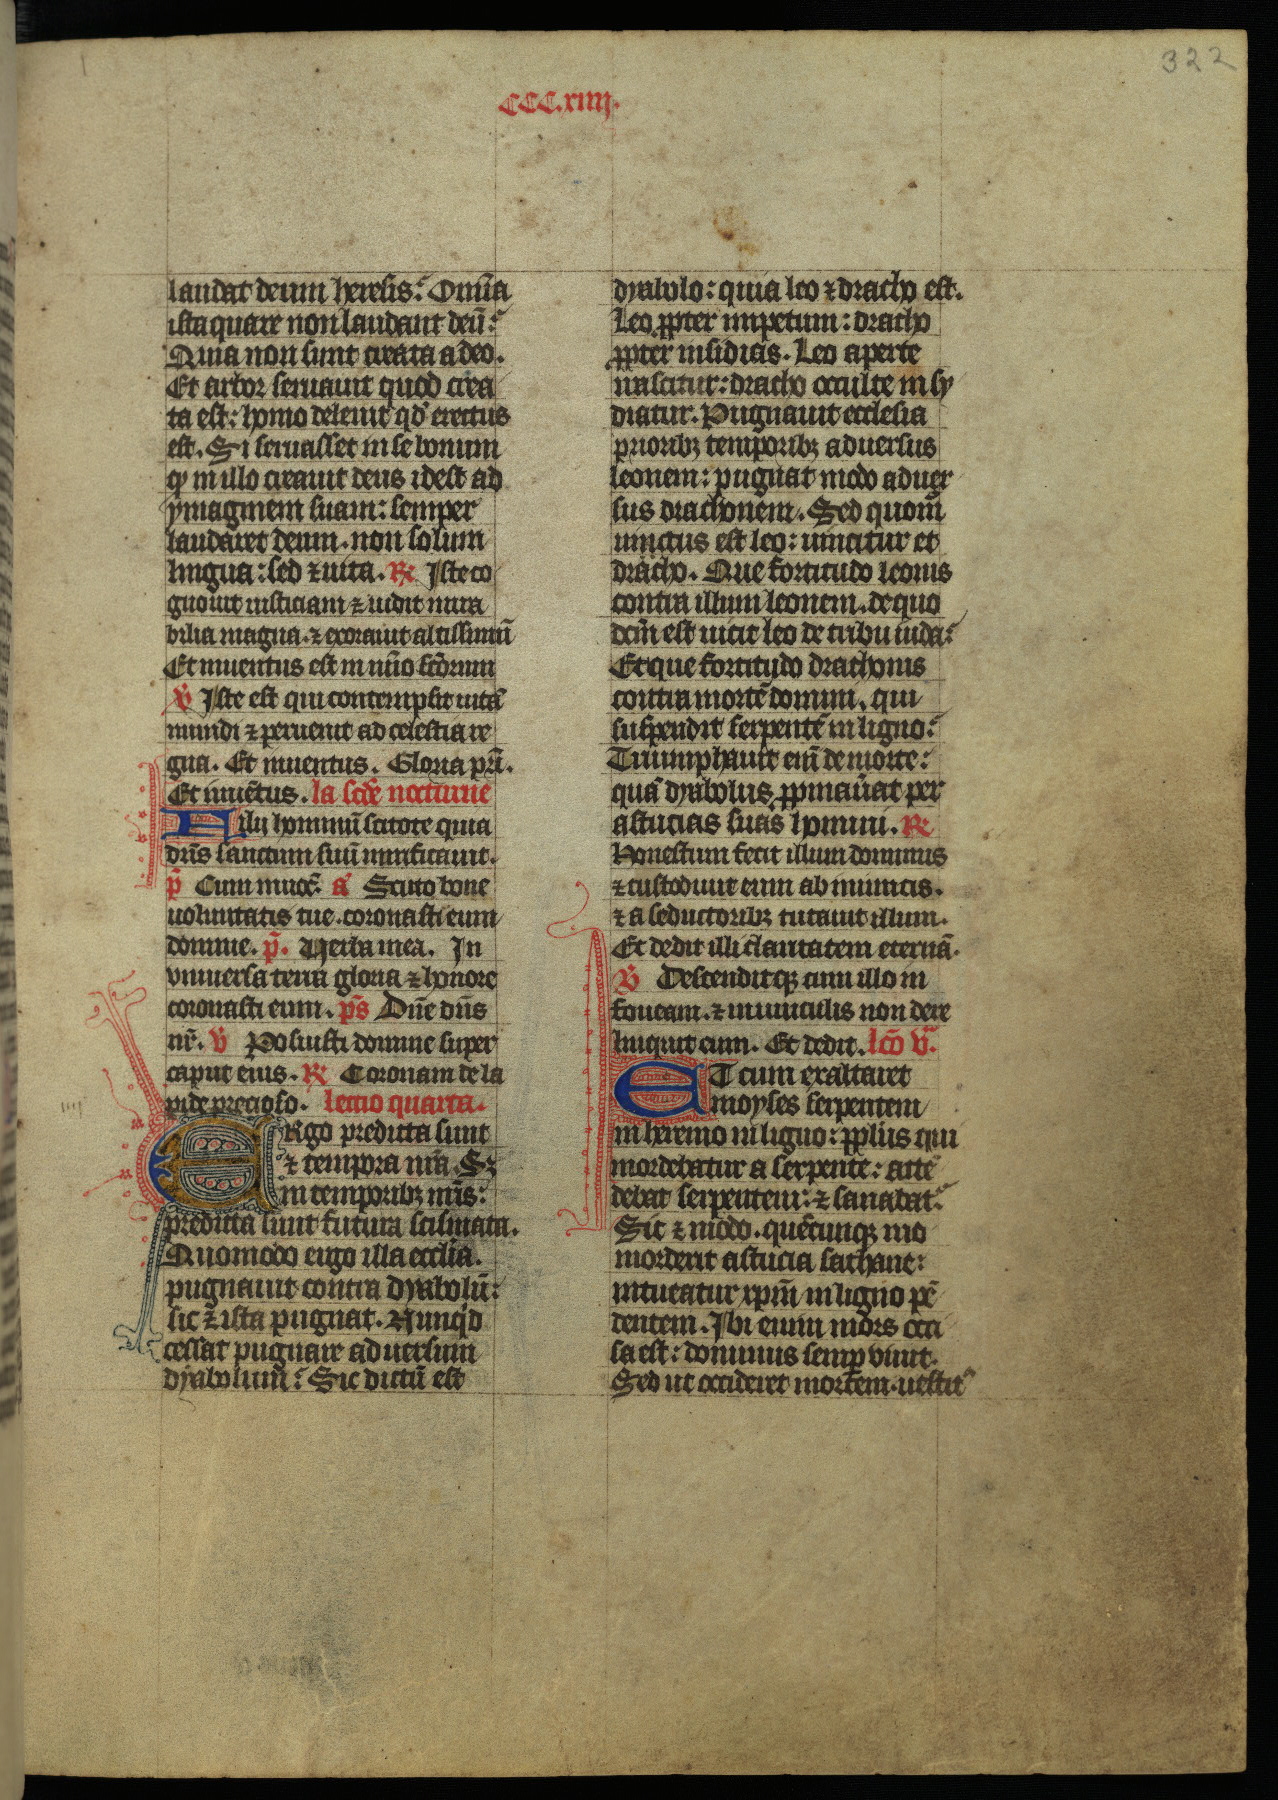 322
CCC.xiiij.
laudat deum heresis: Omnia
ista quare non laudant deū:
Quia non sunt creata a deo.
Et arbor seruauit quod crea
ta est: homo deleuit qd' erectus
est. Si seruasset in se bonum
qd in illo creauit deus idest ad
ymaginem suam: semper
laudaret deum. non solum
lingua: sed ⁊ uita. R Iste co
gnouit iusticiam ⁊ uidit mira
bilia magna. ⁊ exorauit altissimū
Et inuentus est in nūo scōrum
V Iste est qui contempsit uitā
mundi ⁊ peruenit ad celestia re
gna. Et inuentus. Gloria pri.
Et inuētus. la scde nocturne
Filij hominū scitote quia
dn̄s sanctum suū mirificauit.
p̄ Cum inuoc̄. a Scuto bone
uoluntatis tue. coronasti eum
domine. p̄. Uerba mea. In
vniuersa terra gloria ⁊ honore
coronasti eum. ps Dn̄e dn̄s
nr̄. V Posuisti domine super
caput eius. R Coronam de la
pide precioso. lectio quarta.
ERgo predicta sunt
⁊ tempora nr̄a. Sȝ
in temporibȝ nr̄is:
predicta sunt futura scismata.
Quomodo ergo illa ecclīa.
pugnauit contra dyabolū:
sic ⁊ ista pugnat. Nunqd
cessat pugnare aduersum
dyabolum: Sic dictū est
dyabolo: quia leo ⁊ dracho est.
Leo ꝓpter impetum: dracho
ꝓpter insidias. Leo aperte
nascitur: dracho occulte insy
diatur. Pugnauit ecclesia
prioribȝ temporibȝ aduersus
leonem: pugnat modo aduer
sus drachonem. Sed quom̄
uinctus est leo: uincitur et
dracho. Que fortitudo leonis
contra illum leonem. de quo
dcm̄ est uicit leo de tribu iuda:
Et que fortitudo drachonis
contra mortē domini. qui
suspendit serpentē in ligno:
Triumphauit eni de morte:
quā dyabolus ꝓpinau̅at per
astucias suas homini. R
Honestum fecit illum dominus
⁊ custodiuit eum ab inimicis.
⁊ a seductoribȝ tutauit illum.
Et dedit illi claritatem eternā.
V Descenditqȝ cum illo in
foueam. ⁊ in uinculis non dere
linquit eum. Et dedit. lcō v.
ET cum exaltaret
moyses serpentem
in heremo in ligno: pplūs qui
mordebatur a serpente: atte
debat serpentem: ⁊ sanabat.
Sic ⁊ modo. quēcunqȝ mo
morderit astucia sathane:
intueatur xpm̄ in ligno pē
dentem. Ibi enim mors occi
sa est: dominus semp̄ viuit.
Sed ut occideret mortem. uestit